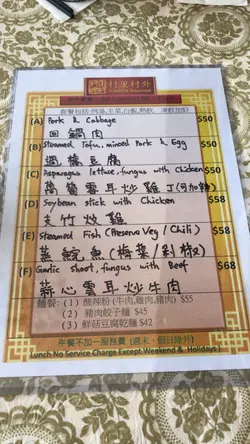 村里村外
套餐包括:例湯,主菜,白飯,熱飲
(A) Pork & Cabbage $50
回鍋肉
(B) Steamed Tofu, minced Pork & Egg $50
豆腐
(C) Asparagus lettuce, fungus with Chicken $50
萵筍雲耳炒雞丁(可加辣)
(D) Soybean stick with Chicken $58
支竹炆雞
(E) Steamed Fish (Preserve Veg / Chili) $58
蒸鯇魚(梅菜/剁椒)
(F) Garlic Shoot, fungus with Beef $68
蒜心雲耳炒牛肉
麵餐: (1) 酸辣粉 (牛肉,雞肉,豬肉) $55
(2) 豬肉餃子麵 $45
(3) 鮮菇豆腐乾麵 $42
午餐不加一服務費 (週末、假日除外)
Lunch No Service Charge Except Weekend & Holidays )